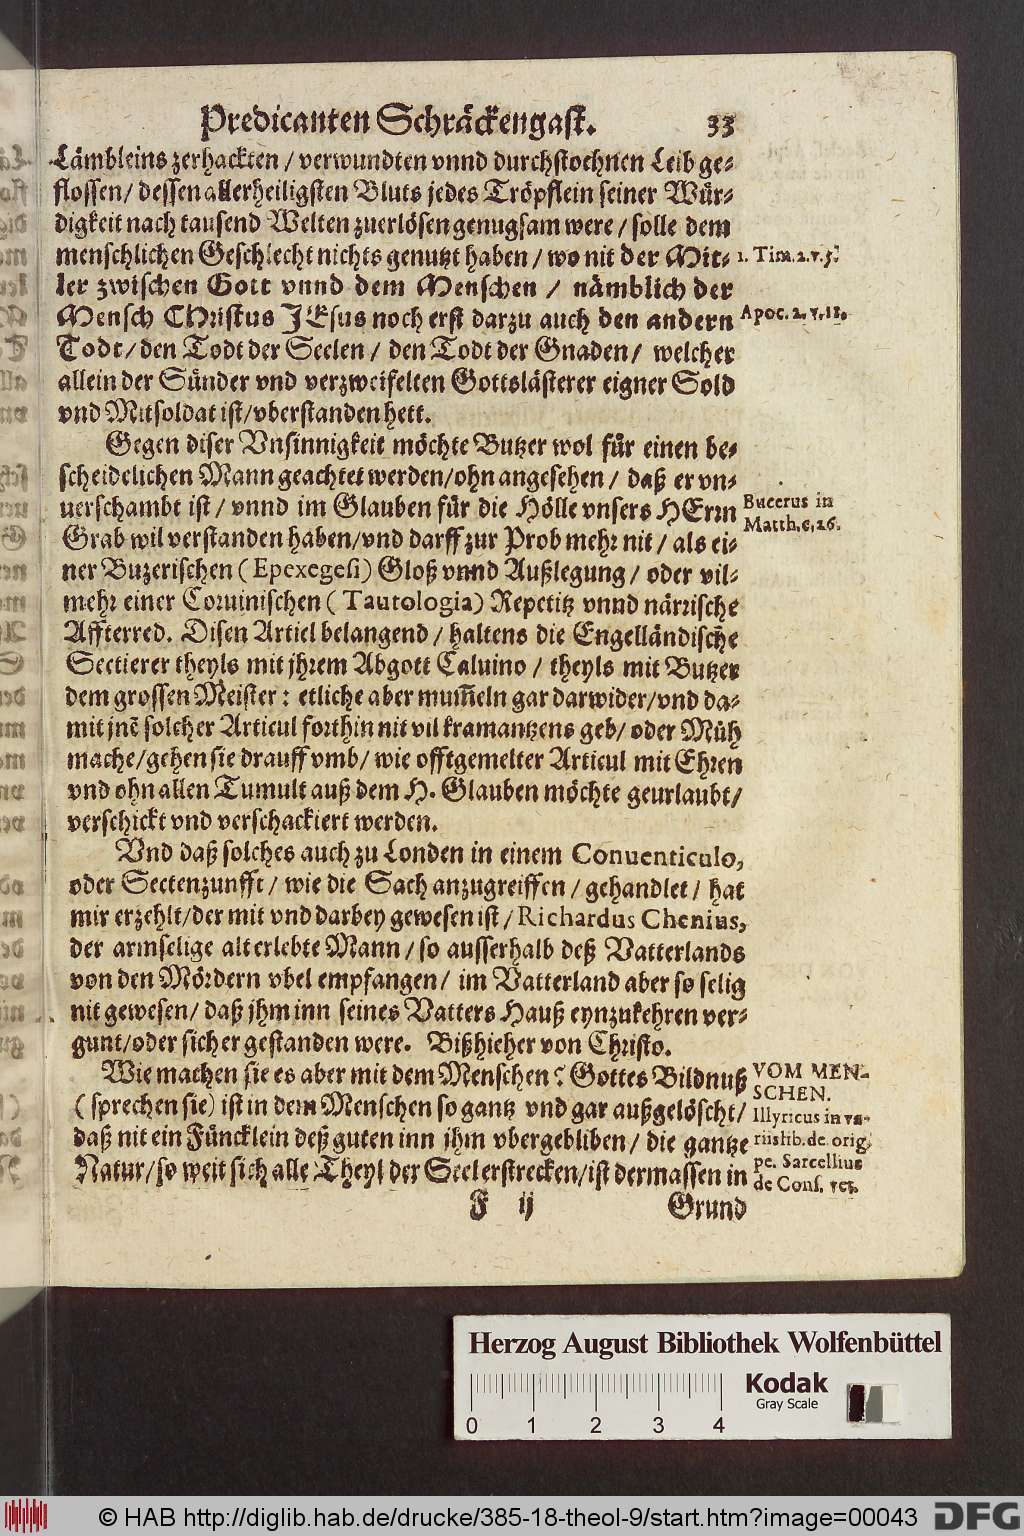 Predicanten Schräckengast. 33
Lämbleins zerhackten / verwundten vnnd durchstochnen Leib ge-
flossen / dessen allerheiligsten Bluts jedes Tröpflein seiner Wür-
digkeit nach tausend Welten zuerlösen genugsam were / solle dem
menschlichen Geschlecht nichts genutzt haben / wo nit der Mit-
ler zwischen Gott vnnd dem Menschen / nämblich der
Mensch CHristus JEsus noch erst darzu auch den andern
Todt / den Todt der Seelen / den Todt der Gnaden / welcher
allein der Sünder vnd verzweifelten Gottslästerer eigner Sold
vnd Mitsoldat ist / vberstanden hett.
1. Tim. 2. v. 5.
Apoc. 2. v. 11.
Gegen diser Vnsinnigkeit möchte Butzer wol für einen be-
scheidelichen Mann geachtet werden / ohn angesehen / daß er vn-
uerschambt ist / vnnd im Glauben für die Hölle vnsers HErrn
Grab wil verstanden haben / vnd darff zur Prob mehr nit / als ei-
ner Buzerischen (Epexegesi) Gloß vnnd Außlegung / oder vil-
mehr einer Coruinischen (Tautologia) Repetitz vnnd närrische
Affterred. Disen Articl belangend / haltens die Engelländische
Sectierer theyls mit jhrem Abgott Caluino / theyls mit Butzer
dem grossen Meister : etliche aber mum̄eln gar darwider / vnd da-
mit jnē solcher Articul forthin nit vil kramantzens geb / oder Müh
mache / gehen sie drauff vmb / wie offtgemelter Articul mit Ehren
vnd ohn allen Tumult auß dem H. Glauben möchte geurlaubt /
verschickt vnd verschackiert werden.
Bucerus in
Matth. c. 26.
Vnd daß solches auch zu Londen in einem Conuenticulo,
oder Sectenzunfft / wie die Sach anzugreiffen / gehandlet / hat
mir erzehlt / der mit vnd darbey gewesen ist / Richardus Chenius,
der armselige alt erlebte Mann / so ausserhalb deß Vatterlands
von den Mördern vbel empfangen / im Vatterland aber so selig
nit gewesen / daß jhm inn seines Vatters Hauß eynzukehren ver-
gunt / oder sicher gestanden were. Bißhieher von Christo.
Wie machen sie es aber mit dem Menschen? Gottes Bildnuß
(sprechen sie) ist in dem Menschen so gantz vnd gar außgelöscht /
daß nit ein Füncklein deß guten inn jhm vbergebliben / die gantze
Natur / so weit sich alle Theyl der Seel erstrecken / ist dermassen in
VOM MEN-
SCHEN.
Illyricus in va-
riis lib. de orig.
pe. Sarcellius
de Cons. ver.
F ij Grund
Herzog August Bibliothek Wolfenbüttel
Kodak
Gray Scale
0 1 2 3 4
© HAB http://diglib.hab.de/drucke/385-18-theol-9/start.htm?image=00043
DFG